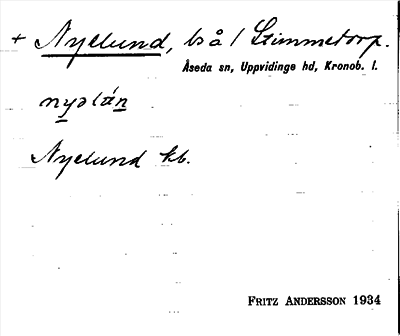 + Nyelund, bs å / Stimmetorp.
Åseda sn, Uppvidinge hd, Kronob. l.
nyəlán
Nyelund kb.
FRITZ ANDERSSON 1934